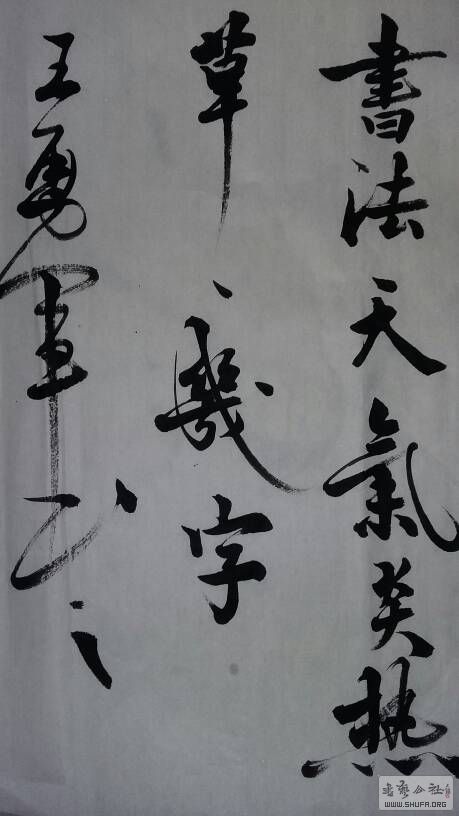 書法天氣炎熱
草、幾字
王勇軍
書艺公社
WWW.SHUFA.ORG